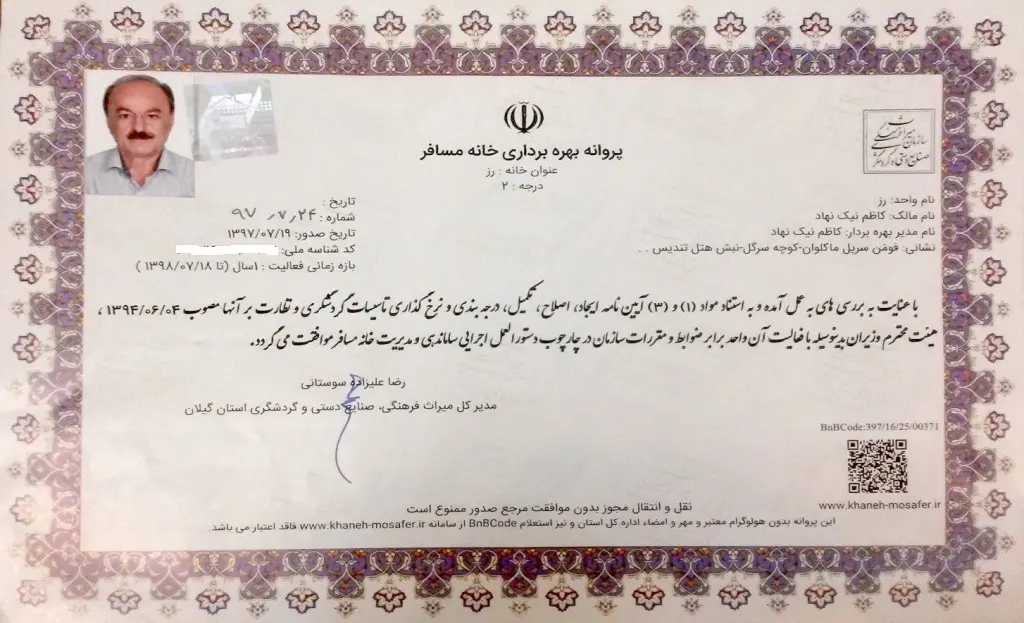 سازمان میراث فرهنگی
صنایع دستی و گردشگری
پروانه بهره برداری خانه مسافر
عنوان خانه : رز
درجه : ۲
نام واحد: رز
نام مالک: کاظم نیک نهاد
نام مدیر بهره بردار: کاظم نیک نهاد
نشانی: فومَن سرپل ماکلوان-کوچه سرگل-نبش هتل تندیس . .
تاریخ :
شماره : ۹۷/۷/۲۴
تاریخ صدور: ۱۳۹۷/۰۷/۱۹
کد شناسه ملی:
بازه زمانی فعالیت : ۱سال (تا ۱۳۹۸/۰۷/۱۸ )
با عنایت به بررسی های به عمل آمده و به استناد مواد (۱) و (۳) آیین نامه ایجاد، اصلاح، تکمیل، درجه بندی و نرخ گذاری تاسیسات گردشگری و نظارت بر آنها مصوب ۱۳۹۴/۰۶/۰۴ ،
هیئت محترم وزیران بدینوسیله با فعالیت آن واحد برابر ضوابط و مقررات سازمان در چارچوب دستورالعمل اجرایی ساماندهی و مدیریت خانه مسافر موافقت می گردد.
رضا علیزاده سوستانی
مدیر کل میراث فرهنگی، صنایع دستی و گردشگری استان گیلان
BnBCode:397/16/25/00371
www.khaneh-mosafer.ir
نقل و انتقال مجوز بدون موافقت مرجع صدور ممنوع است
این پروانه بدون هولوگرام معتبر و مهر و امضاء اداره کل استان و نیز استعلام BnBCode از سامانه www.khaneh-mosafer.ir فاقد اعتبار می باشد.